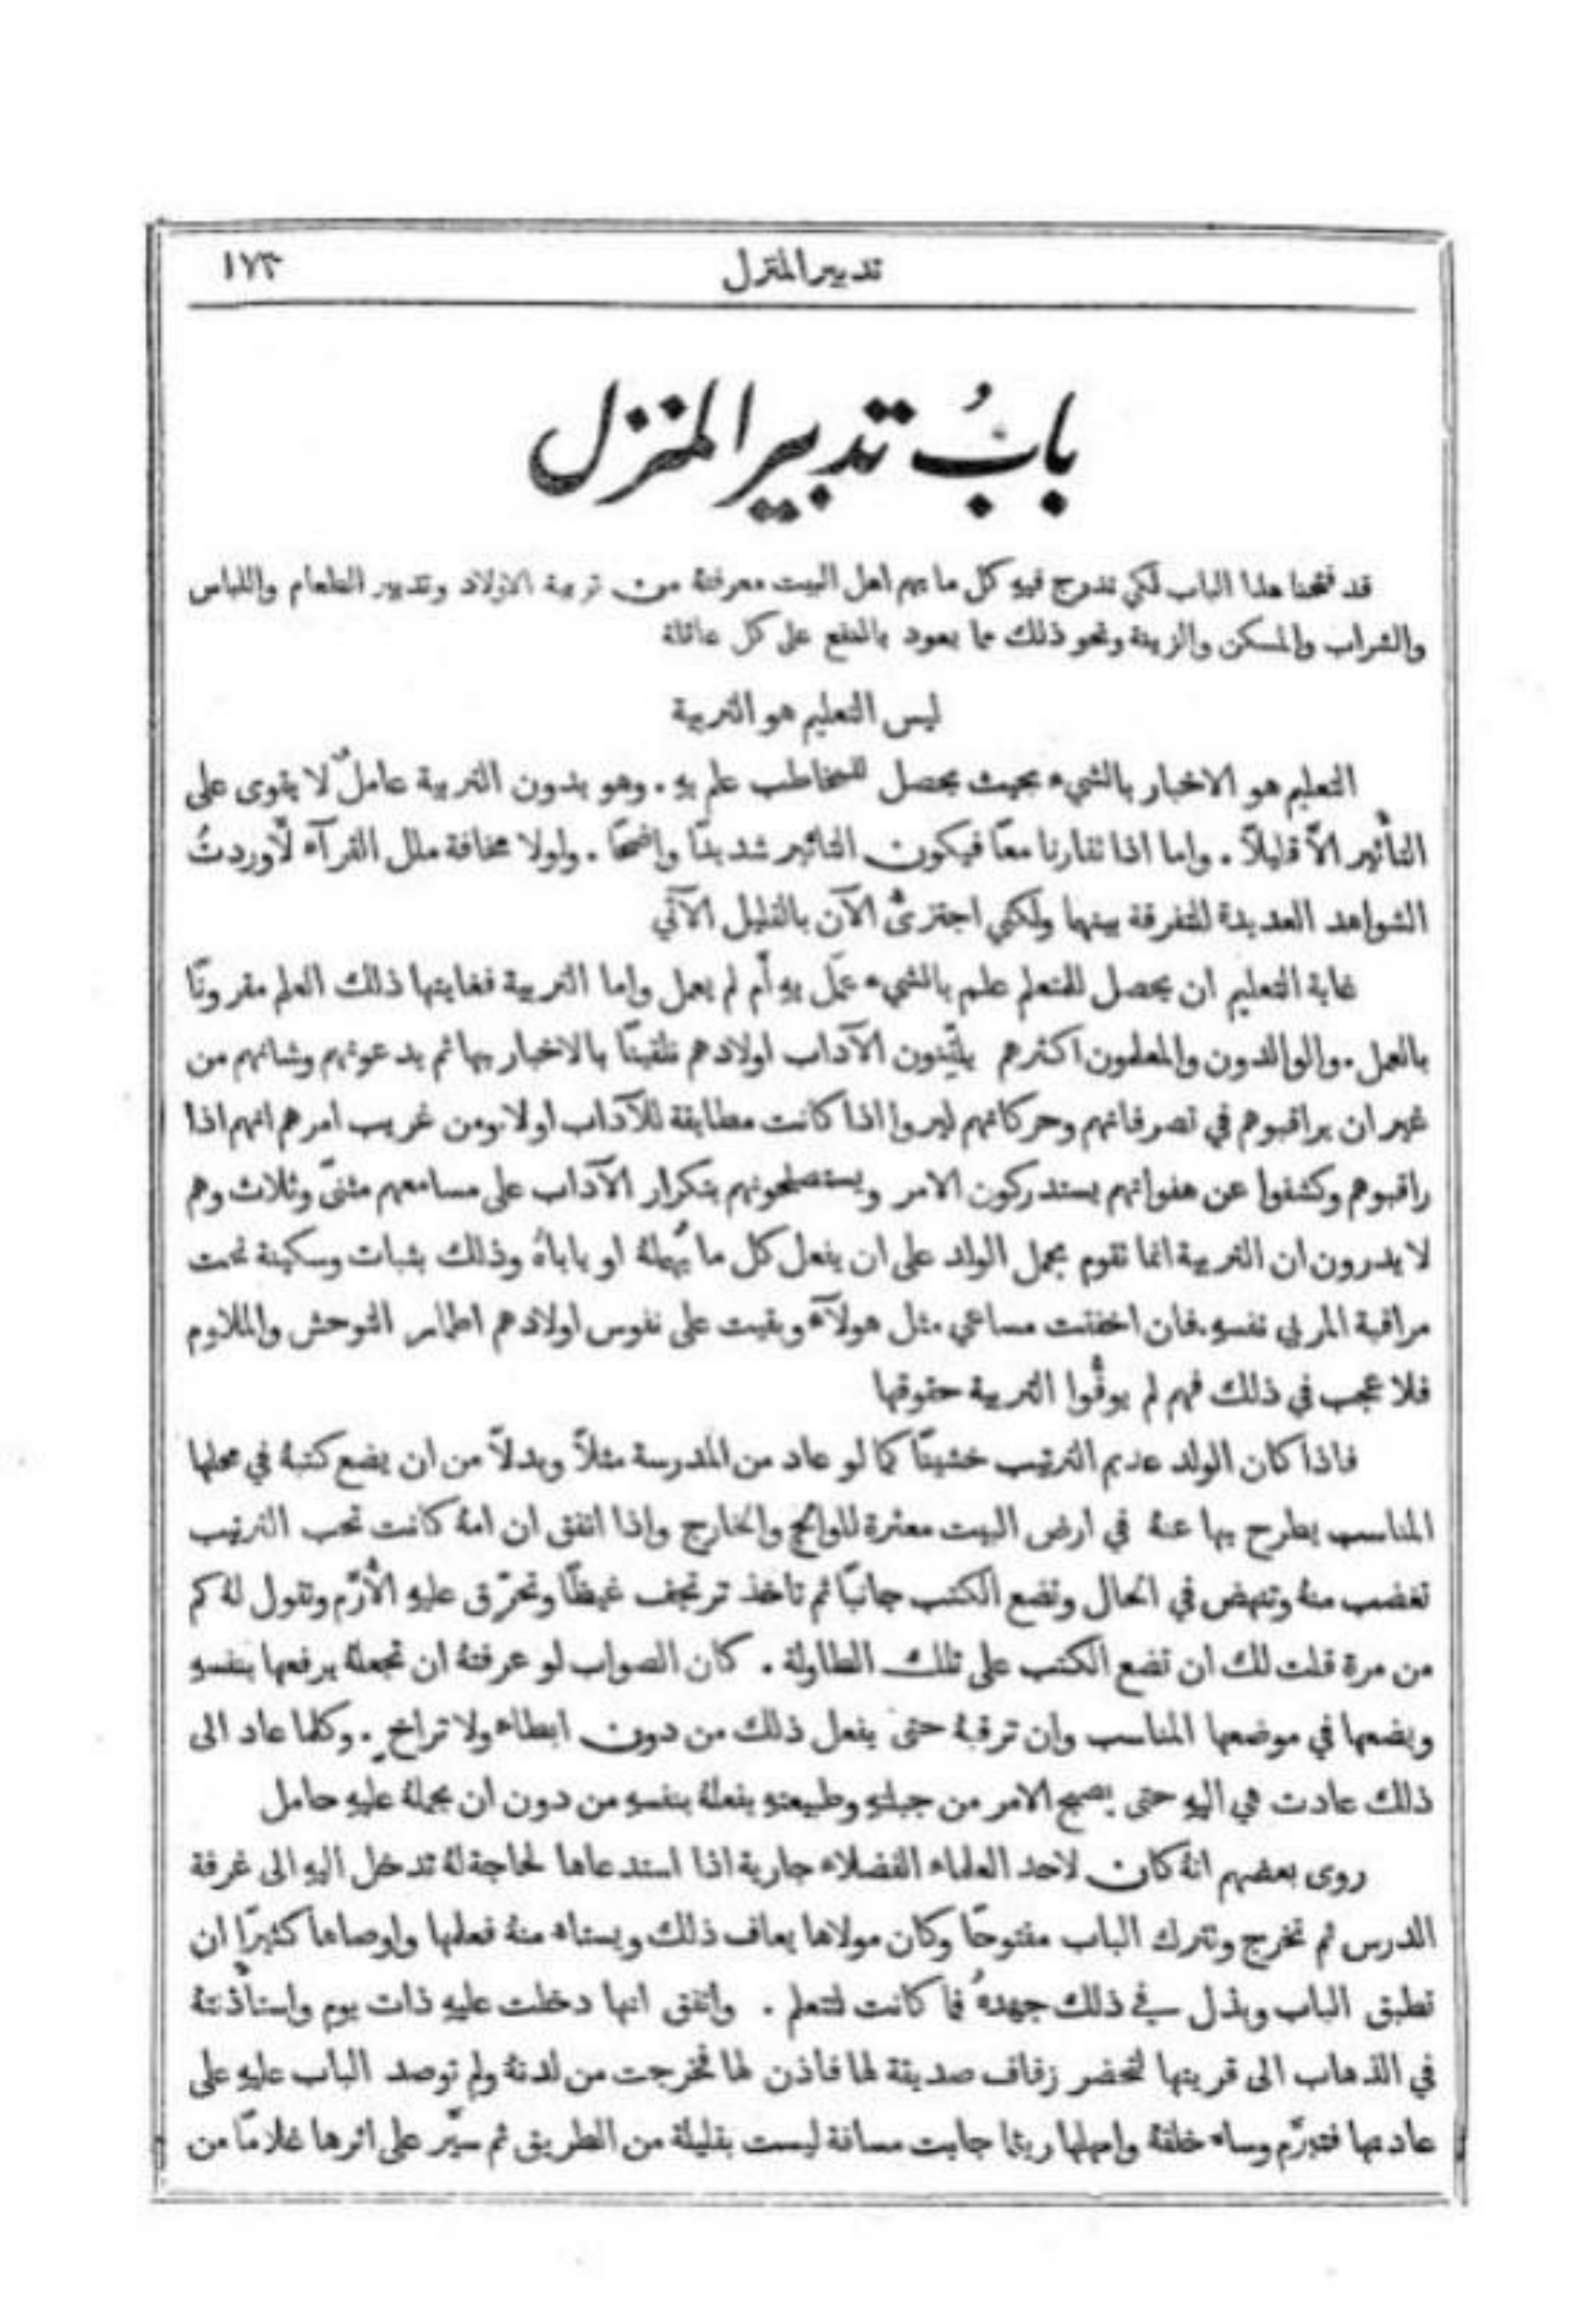 تدبير المنزل ١٧٣
بابُ تدبير المنزل
قد فتحنا هذا الباب لكي ندرج فيهِ كل ما يهم اهل البيت معرفتهُ من تربية الاولاد وتدبير الطعام واللباس
والشراب والمسكن والزينة ونحو ذلك مما يعود بالنفع على كل عائلة
ليس التعليم هو التربية
التعليم هو الاخبار بالشيء بحيث يحصل للمخاطب علم بهِ . وهو بدون التربية عاملٌ لا يقوى على
التأثير الاَّ قليلاً . واما اذا تقارنا معًا فيكون التاثير شديدًا واضحًا . ولولا مخافة ملل القرآء لأوردتُ
الشواهد العديدة للتفرقة بينهما ولكني اجتزئُ الآن بالقليل الآتي
غاية التعليم ان يحصل للمتعلم علم بالشيء عَمل بهِ أَم لم يعمل واما التربية فغايتها ذلك العلم مقرونًا
بالعمل . والوالدون والمعلمون اكثرهم يلقِّنون الآداب اولادهم تلقينًا بالاخبار بها ثم يدعونهم وشانهم من
غير ان يراقبوهم في تصرفاتهم وحركاتهم ليروا اذا كانت مطابقة للآداب او لا . ومن غريب امرهم انهم اذا
راقبوهم وكشفوا عن هفواتهم يستدركون الامر ويستصلحونهم بتكرار الآداب على مسامعهم مثنىً وثلاث وهم
لا يدرون ان التربية انما تقوم بحمل الولد على ان يفعل كل ما يُهملهُ او ياباهُ وذلك بثبات وسكينة تحت
مراقبة المربي نفسهِ . فان اخفقت مساعي مثل هولآء وبقيت على نفوس اولادهم اطمار التوحش والملاوم
فلا عجب في ذلك فهم لم يوفُّوا التربية حقوقها
فاذا كان الولد عديم الترتيب خشينًا كما لو عاد من المدرسة مثلاً وبدلاً من ان يضع كتبهُ في محلها
المناسب يطرح بها عنهُ في ارض البيت معثرة للوالج والخارج واذا اتفق ان امهُ كانت تحب الترتيب
تغضب منهُ وتنهض في الحال وتضع الكتب جانبًا ثم تاخذ ترتجف غيظًا وتحرّق عليهِ الأُرَّم وتقول لهُ كم
من مرة قلت لك ان تضع الكتب على تلك الطاولة . كان الصواب لو عرفتهُ ان تجعلهُ يرفعها بنفسهِ
ويضعها في موضعها المناسب وان ترقبهُ حتى يفعل ذلك من دون ابطاء ولا تراخٍ . وكلما عاد الى
ذلك عادت هي اليهِ حتى يصبح الامر من جبلتهِ وطبيعتهِ يفعلهُ بنفسهِ من دون ان يحملهُ عليهِ حامل
روى بعضهم انهُ كان لاحد العلماء الفضلاء جارية اذا استدعاها لحاجة لهُ تدخل اليهِ الى غرفة
الدرس ثم تخرج وتترك الباب مفتوحًا وكان مولاها يعاف ذلك ويستاء منهُ فعلمها واوصاها كثيرًا ان
تطبق الباب وبذل في ذلك جهدهُ فما كانت لتتعلم . واتفق انها دخلت عليهِ ذات يوم واستأذنتهُ
في الذهاب الى قريتها لتحضر زفاف صديقة لها فاذن لها فخرجت من لدنهُ ولم توصد الباب عليهِ على
عادتها فتبرَّم وساء خلقهُ وامهلها ريثما جابت مسافة ليست بقليلة من الطريق ثم سيَّر على اثرها غلامًا من